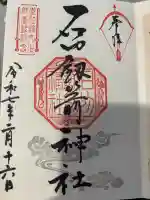 奉拝
石劔箭神社
令和七年二月十六日